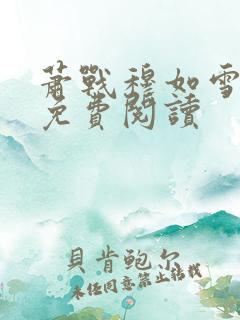 蕭戰穆如雪
免費閱讀
貝肯鮑尔
未經同意禁止轉載